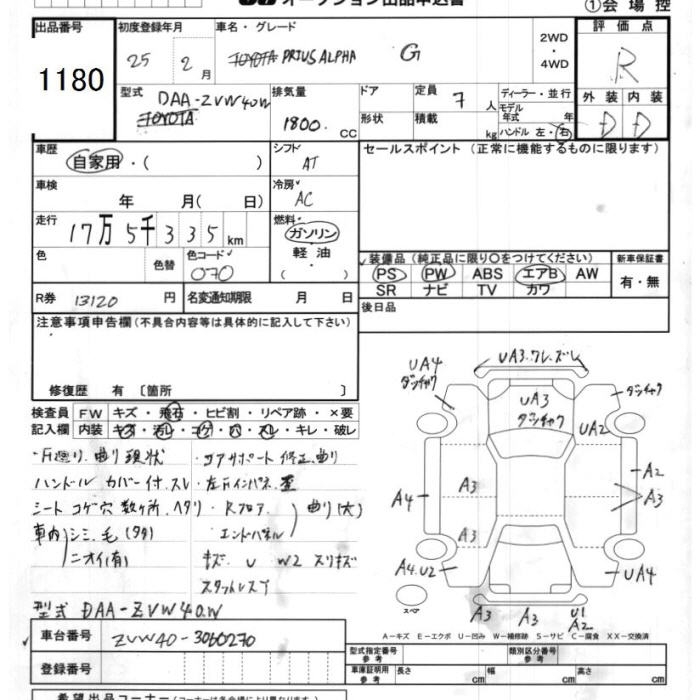 オークション出品申込書
①会場控
出品番号
1180
初度登録年月
25 2月
車名・グレード
TOYOTA PRIUS ALPHA G
2WD
・
4WD
評価点
R
外装 内装
D D
型式
DAA-ZVW40W
TOYOTA
排気量
1800. CC
ドア
形状
定員 7 人
積載 kg
ディーラー・並行
モデル
年式 年
ハンドル 左・右
車歴
自家用・( )
シフト
AT
セールスポイント(正常に機能するものに限ります)
車検
年 月(日)
冷房
AC
走行
17万5千335km
燃料
ガソリン
軽油
( )
色
色替
色コード
070
装備品(純正品に限り○をつけてください)
PS PW ABS エアB AW
SR ナビ TV カワ
新車保証書
有・無
R券 13120 円
名変通知期限 月 日
後日品
注意事項申告欄(不具合内容等は具体的に記入して下さい)
修復歴 有〔箇所 〕
検査員
記入欄
FW キズ・飛石・ヒビ割・リペア跡・×要
内装 キズ・汚レ・コゲ・穴・スレ・キレ・破レ
曲り 現状
・コアサポート 修正 曲り
ハンドル カバー付 スレ
・左Fインパネ 歪
シート コゲ穴 数ケ所 ヘタリ
・Rフロア
エンドパネル
曲り(大)
車内 シミ 毛(多)
ニオイ(有)
キズ U W2 スリキズ
スタットレス
型式 DAA-ZVW40W
UA4
ダンシャク
UA3.ワレ.ズレ
UA3
ダンシャク
ダンシャク
UA2
A4
A3
A3
A2
A3
A4.U2
UA4
スペア
A3
A3
U1
A2
A-キズ E-エクボ U-凹み W-補修跡 S-サビ C-腐食 XX-交換済
車台番号 ZVW40-3060270
登録番号
型式指定番号
参考
類別区分番号
参考
車庫証明用
参考
長さ cm 幅 cm 高さ cm
希望出品コーナー